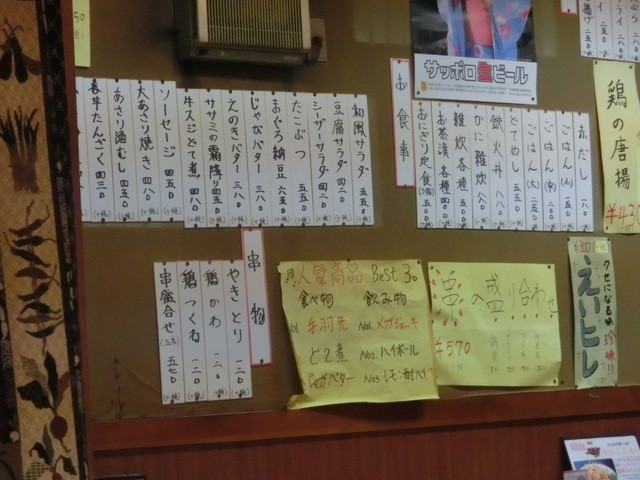 サッポロ生ビール
和風サラダ 五五〇
豆腐サラダ 四二〇
シーザーサラダ 四二〇
たこぶつ 五五〇
まぐろ納豆 六五〇
じゃがバター 三八〇
えのきバター 三八〇
ササミの霜降り 四五〇
牛スジどて煮 四八〇
ソーセージ 四五〇
大あさり焼き 四八〇
あさり酒むし 四五〇
お食事
赤だし 一八〇
ごはん(小) 一五〇
ごはん(中) 二〇〇
ごはん(大) 二五〇
とてめし 五五〇
鉄火丼 八八〇
かに雑炊 八八〇
雑炊 各種 五五〇
お茶漬 各種
おにぎり定食
鶏の唐揚
串物
やきとり 一二〇
鶏かわ 一二〇
鶏つくね 一二〇
串盛合せ(五本) 五七〇
人気商品 Best 3。
食べ物 飲み物
手羽先 No1. メガジョッキ
どて煮 No2. ハイボール
じゃがバター No3 レモン酎ハイ
の盛り合わせ
¥570
¥300
クセになる味
珍味!!
えいヒレ